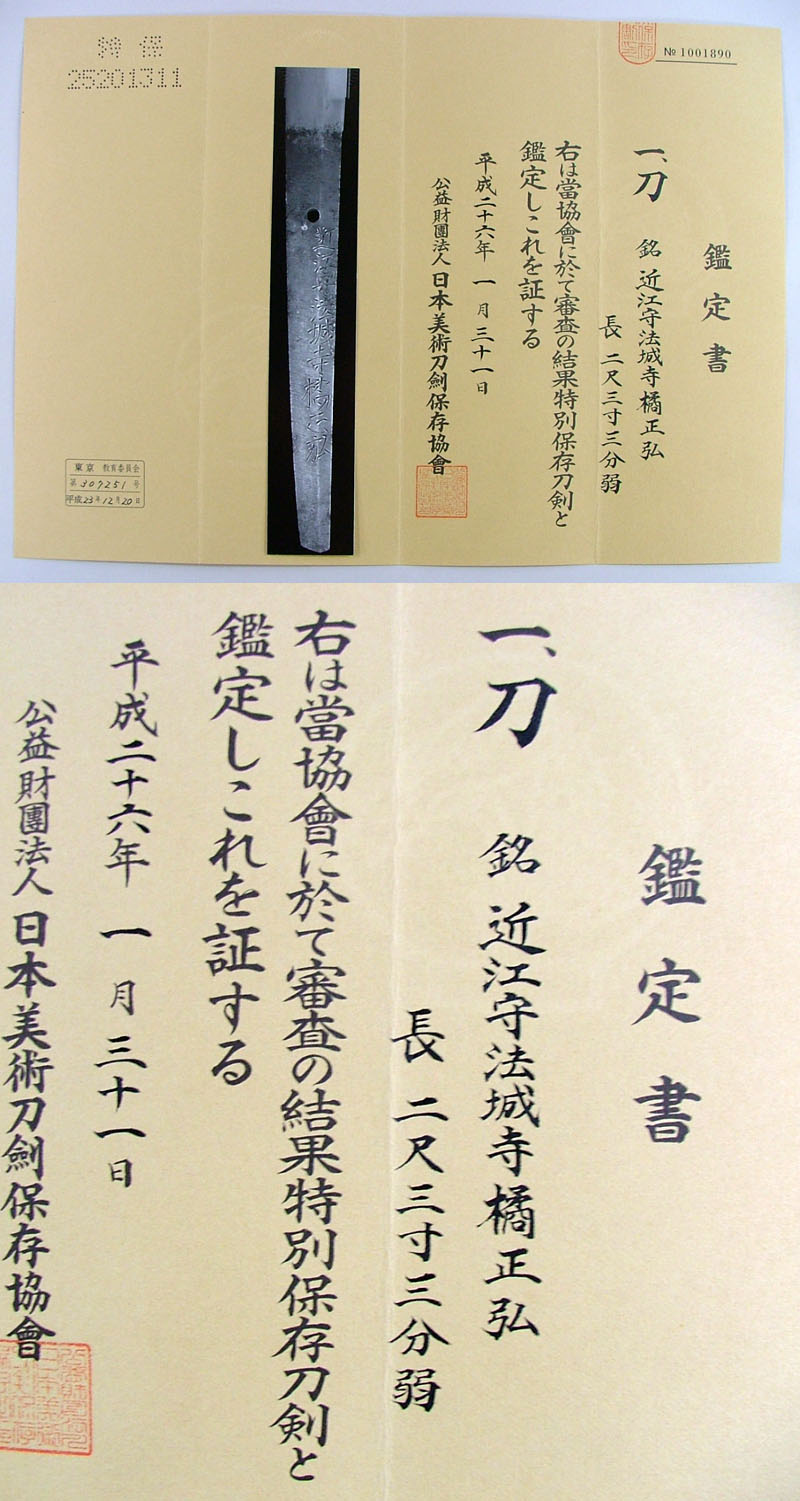 № 1001890
鑑定書
一、刀 銘 近江守法城寺橘正弘
長 二尺三寸三分弱
右は當協會に於て審査の結果特別保存刀剣と
鑑定しこれを証する
平成二十六年 一月三十一日
公益財團法人 日本美術刀劍保存協會
近江守法城寺橘正弘
特保
25201311
東京 教育委員会
第 307251 号
平成23年12月20日
鑑定書
一、刀 銘 近江守法城寺橘正弘
長 二尺三寸三分弱
右は當協會に於て審査の結果特別保存刀剣と
鑑定しこれを証する
平成二十六年 一月三十一日
公益財團法人 日本美術刀劍保存協會